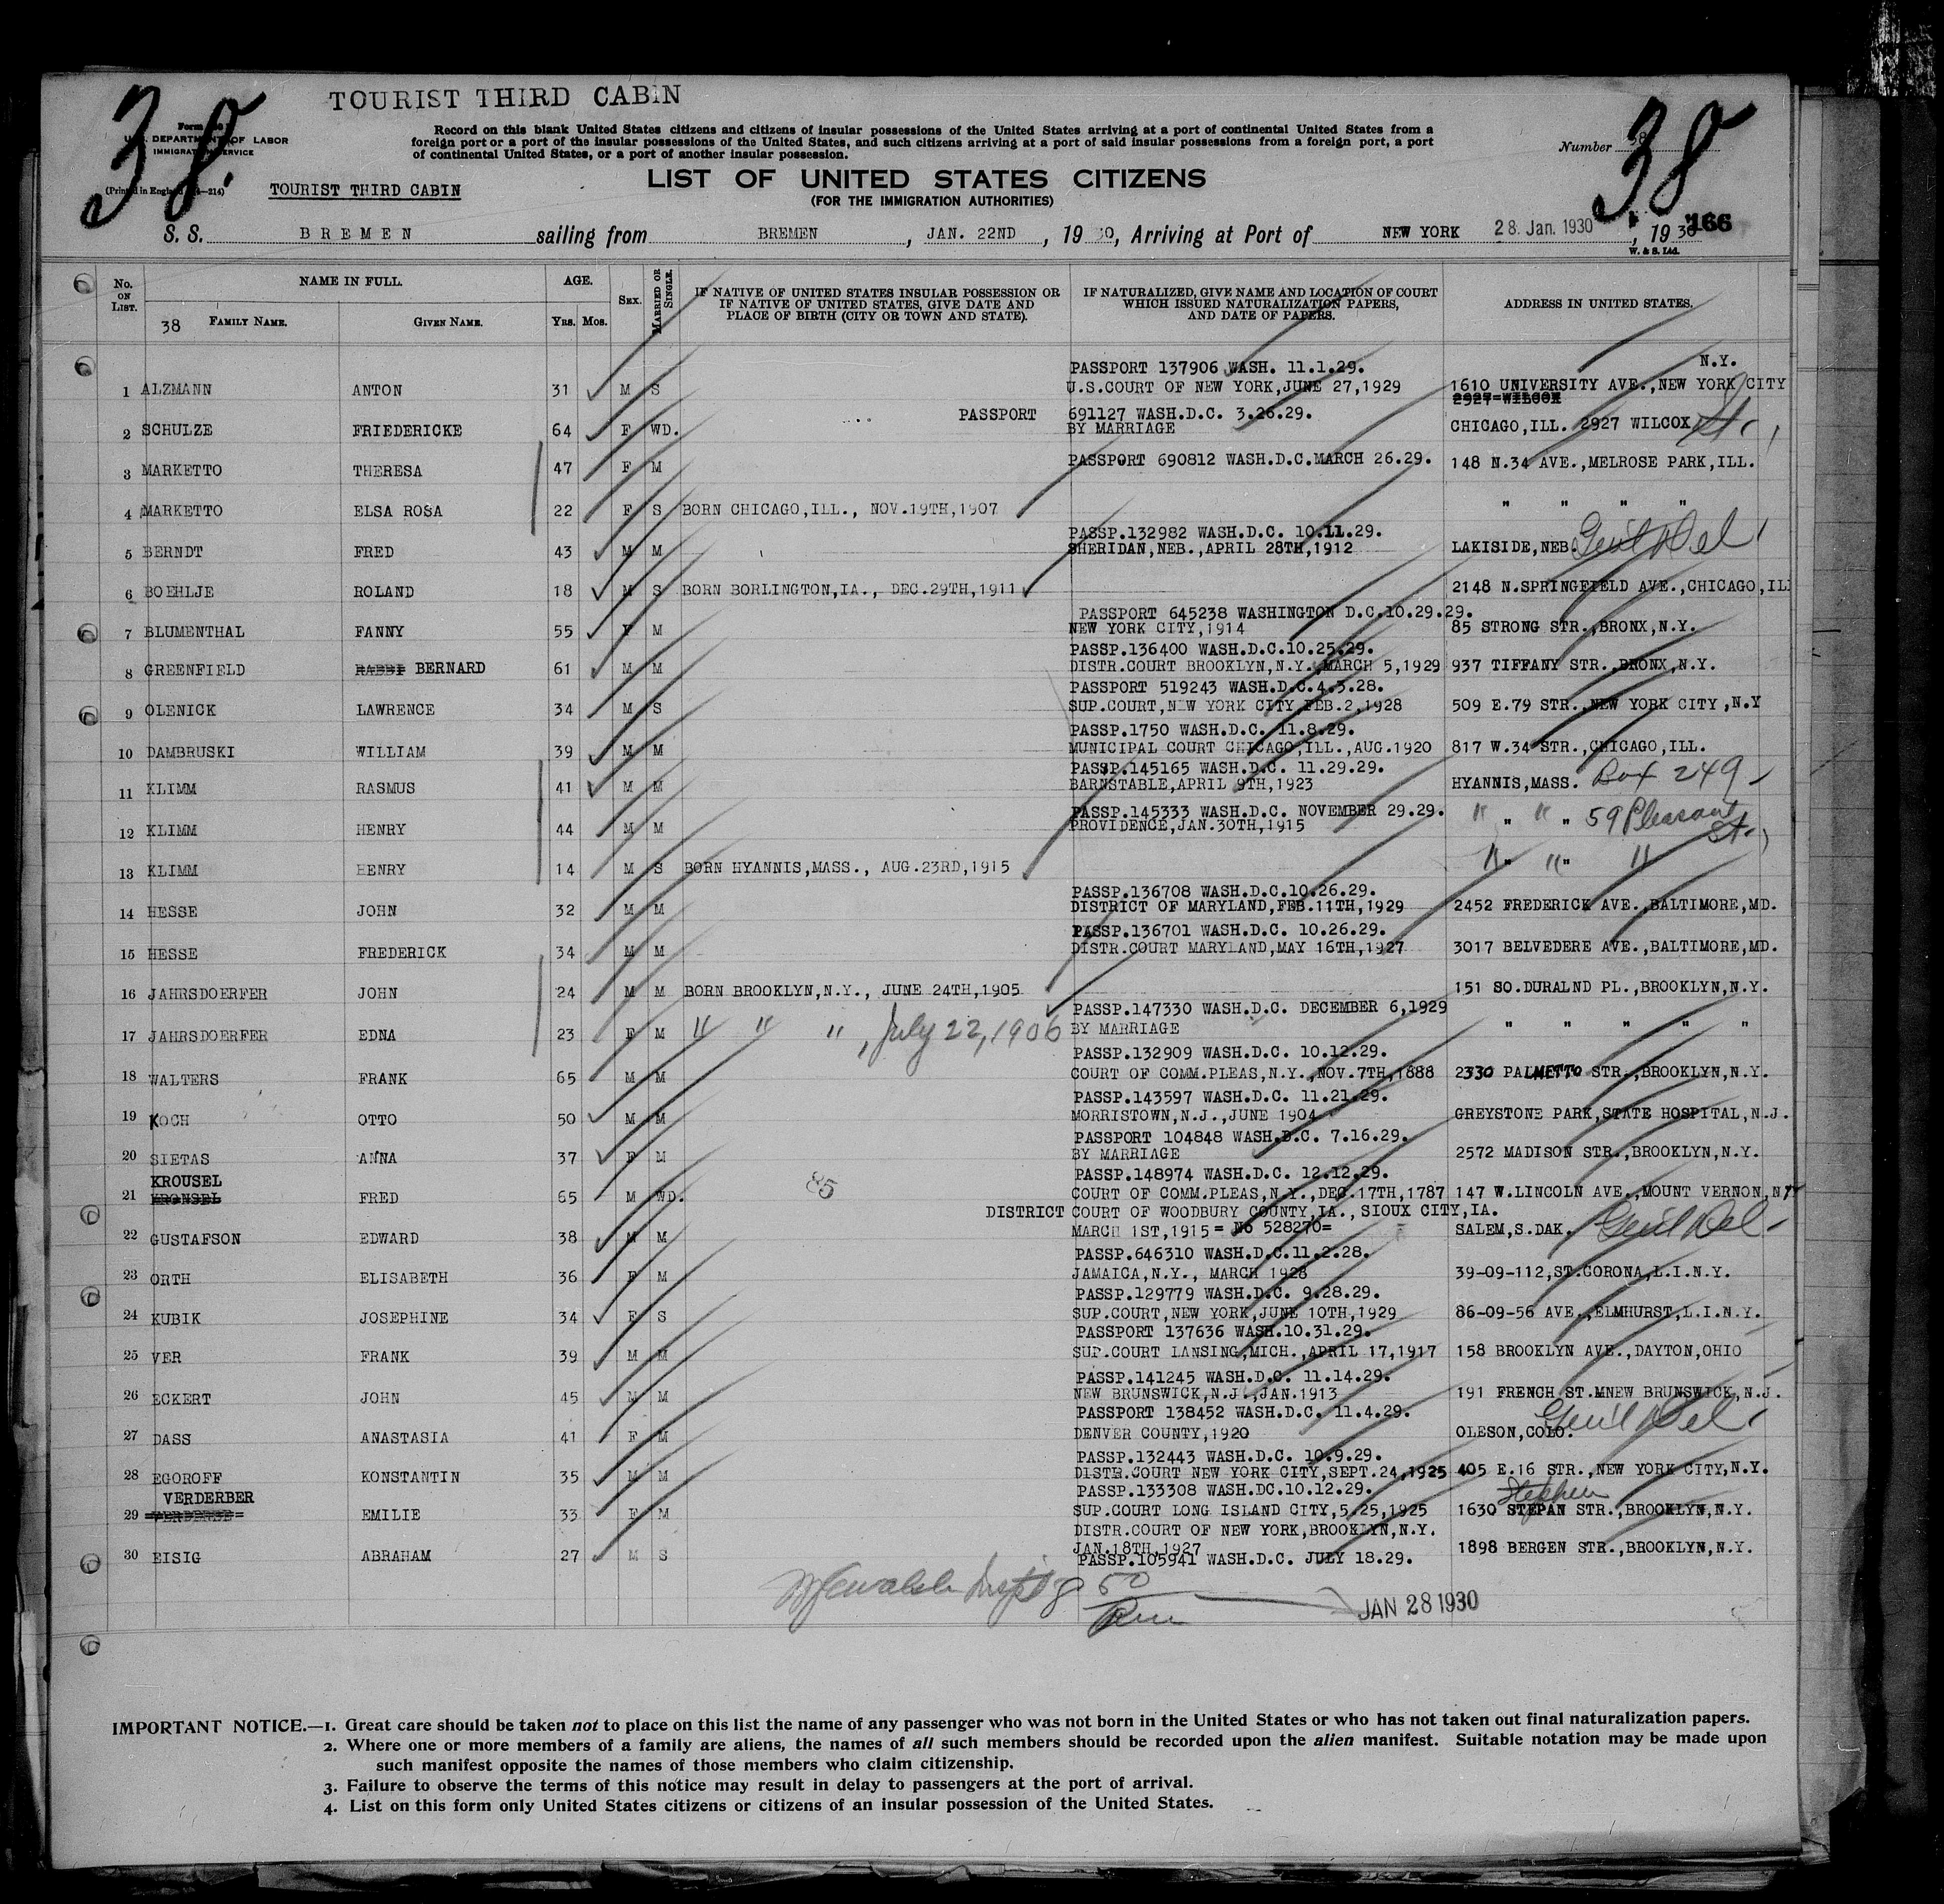 TOURIST THIRD CABIN
38.
38
U. S. DEPARTMENT OF LABOR
IMMIGRATION SERVICE
Record on this blank United States citizens and citizens of insular possessions of the United States arriving at a port of continental United States from a
foreign port or a port of the insular possessions of the United States, and such citizens arriving at a port of said insular possessions from a foreign port, a port
of continental United States, or a port of another insular possession.
Number
LIST OF UNITED STATES CITIZENS
TOURIST THIRD CABIN
(FOR THE IMMIGRATION AUTHORITIES)
S. S. BREMEN sailing from BREMEN, JAN. 22ND, 19 30, Arriving at Port of NEW YORK 28 Jan. 1930, 1930 166
W. & S. Ltd.
No. ON LIST. NAME IN FULL. AGE. SEX. MARRIED OR SINGLE. IF NATIVE OF UNITED STATES INSULAR POSSESSION OR IF NATIVE OF UNITED STATES, GIVE DATE AND PLACE OF BIRTH (CITY OR TOWN AND STATE). IF NATURALIZED, GIVE NAME AND LOCATION OF COURT WHICH ISSUED NATURALIZATION PAPERS, AND DATE OF PAPERS. ADDRESS IN UNITED STATES.
38 FAMILY NAME. GIVEN NAME. YRS. MOS.
PASSPORT 137906 WASH. 11.1.29. N.Y.
1 ALZMANN ANTON 31 M S U.S.COURT OF NEW YORK,JUNE 27,1929 1610 UNIVERSITY AVE.,NEW YORK CITY
2927 WILCOX
PASSPORT 691127 WASH.D.C. 3.26.29.
2 SCHULZE FRIEDERICKE 64 F WD. BY MARRIAGE CHICAGO,ILL. 2927 WILCOX St.,
3 MARKETTO THERESA 47 F M PASSPORT 690812 WASH.D.C.MARCH 26.29. 148 N.34 AVE.,MELROSE PARK,ILL.
4 MARKETTO ELSA ROSA 22 F S BORN CHICAGO,ILL., NOV.19TH,1907 " " " "
PASSP.132982 WASH.D.C. 10.11.29.
5 BERNDT FRED 43 M M SHERIDAN,NEB.,APRIL 28TH,1912 LAKISIDE,NEB. Gen'l Del
6 BOEHLJE ROLAND 18 M S BORN BORLINGTON,IA., DEC.29TH,1911 2148 N.SPRINGFIELD AVE.,CHICAGO,ILL
PASSPORT 645238 WASHINGTON D.C.10.29.29.
7 BLUMENTHAL FANNY 55 F M NEW YORK CITY,1914 85 STRONG STR.,BRONX,N.Y.
PASSP.136400 WASH.D.C.10.25.29.
8 GREENFIELD RABBI BERNARD 61 M M DISTR.COURT BROOKLYN,N.Y.,MARCH 5,1929 937 TIFFANY STR.,BRONX,N.Y.
PASSPORT 519243 WASH.D.C.4.3.28.
9 OLENICK LAWRENCE 34 M S SUP.COURT,NEW YORK CITY,FEB.2,1928 509 E.79 STR.,NEW YORK CITY,N.Y
PASSP.1750 WASH.D.C. 11.8.29.
10 DAMBRUSKI WILLIAM 39 M M MUNICIPAL COURT CHICAGO,ILL.,AUG.1920 817 W.34 STR.,CHICAGO,ILL.
PASSP.145165 WASH.D.C. 11.29.29.
11 KLIMM RASMUS 41 M M BARNSTABLE,APRIL 9TH,1923 HYANNIS,MASS. Box 249
PASSP.145333 WASH.D.C. NOVEMBER 29.29.
12 KLIMM HENRY 44 M M PROVIDENCE,JAN.30TH,1915 " " " " 59 Pleasant St.,
13 KLIMM HENRY 14 M S BORN HYANNIS,MASS., AUG.23RD,1915 " " " " "
PASSP.136708 WASH.D.C.10.26.29.
14 HESSE JOHN 32 M M DISTRICT OF MARYLAND,FEB.11TH,1929 2452 FREDERICK AVE.,BALTIMORE,MD.
PASSP.136701 WASH.D.C. 10.26.29.
15 HESSE FREDERICK 34 M M DISTR.COURT MARYLAND,MAY 16TH,1927 3017 BELVEDERE AVE.,BALTIMORE,MD.
16 JAHRSDOERFER JOHN 24 M M BORN BROOKLYN,N.Y., JUNE 24TH,1905 151 SO.DURALND PL.,BROOKLYN,N.Y.
PASSP.147330 WASH.D.C. DECEMBER 6,1929
17 JAHRSDOERFER EDNA 23 F M " " ", July 22, 1906 BY MARRIAGE " " " " "
PASSP.132909 WASH.D.C. 10.12.29.
18 WALTERS FRANK 65 M M COURT OF COMM.PLEAS,N.Y.,NOV.7TH,1888 2330 PALMETTO STR.,BROOKLYN,N.Y.
PASSP.143597 WASH.D.C. 11.21.29.
19 KOCH OTTO 50 M M MORRISTOWN,N.J.,JUNE 1904 GREYSTONE PARK,STATE HOSPITAL,N.J.
PASSPORT 104848 WASH.D.C. 7.16.29.
20 SIETAS ANNA 37 F M BY MARRIAGE 2572 MADISON STR.,BROOKLYN,N.Y.
KROUSEL PASSP.148974 WASH.D.C. 12.12.29.
21 KRONSEL FRED 65 M WD. 85 COURT OF COMM.PLEAS,N.Y.,DEC.17TH,1787 147 W.LINCOLN AVE.,MOUNT VERNON,NY
DISTRICT COURT OF WOODBURY COUNTY,IA., SIOUX CITY,IA.
22 GUSTAFSON EDWARD 38 M M MARCH 1ST,1915 = No 528270= SALEM,S.DAK. Gen'l Del
PASSP.646310 WASH.D.C.11.2.28.
23 ORTH ELISABETH 36 F M JAMAICA,N.Y., MARCH 1928 39-09-112,ST.CORONA,L.I.N.Y.
PASSP.129779 WASH.D.C. 9.28.29.
24 KUBIK JOSEPHINE 34 F S SUP.COURT,NEW YORK,JUNE 10TH,1929 86-09-56 AVE.,ELMHURST,L.I.N.Y.
PASSPORT 137636 WASH.10.31.29.
25 VER FRANK 39 M M SUP.COURT LANSING,MICH.,APRIL 17,1917 158 BROOKLYN AVE.,DAYTON,OHIO
PASSP.141245 WASH.D.C. 11.14.29.
26 ECKERT JOHN 45 M M NEW BRUNSWICK,N.J.,JAN.1913 191 FRENCH ST.MNEW BRUNSWICK,N.J.
PASSPORT 138452 WASH.D.C. 11.4.29.
27 DASS ANASTASIA 41 F M DENVER COUNTY,1920 OLESON,COLO. Gen'l Del
PASSP.132443 WASH.D.C. 10.9.29.
28 EGOROFF KONSTANTIN 35 M M DISTR.COURT NEW YORK CITY,SEPT.24,1925 405 E.16 STR.,NEW YORK CITY,N.Y.
VERDERBER PASSP.133308 WASH.DC.10.12.29. Stephen
29 EMILIE 33 F M SUP.COURT LONG ISLAND CITY,5,25,1925 1630 STEPAN STR.,BROOKLYN,N.Y.
DISTR.COURT OF NEW YORK,BROOKLYN,N.Y.
30 EISIG ABRAHAM 27 M S JAN.18TH,1927 1898 BERGEN STR.,BROOKLYN,N.Y.
PASSP.105941 WASH.D.C. JULY 18.29.
JAN 28 1930
IMPORTANT NOTICE.—1. Great care should be taken not to place on this list the name of any passenger who was not born in the United States or who has not taken out final naturalization papers.
2. Where one or more members of a family are aliens, the names of all such members should be recorded upon the alien manifest. Suitable notation may be made upon
such manifest opposite the names of those members who claim citizenship.
3. Failure to observe the terms of this notice may result in delay to passengers at the port of arrival.
4. List on this form only United States citizens or citizens of an insular possession of the United States.